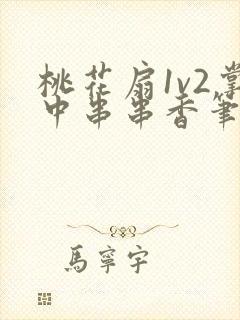 桃花扇1v2掌
中串串香筆
馬寧宇